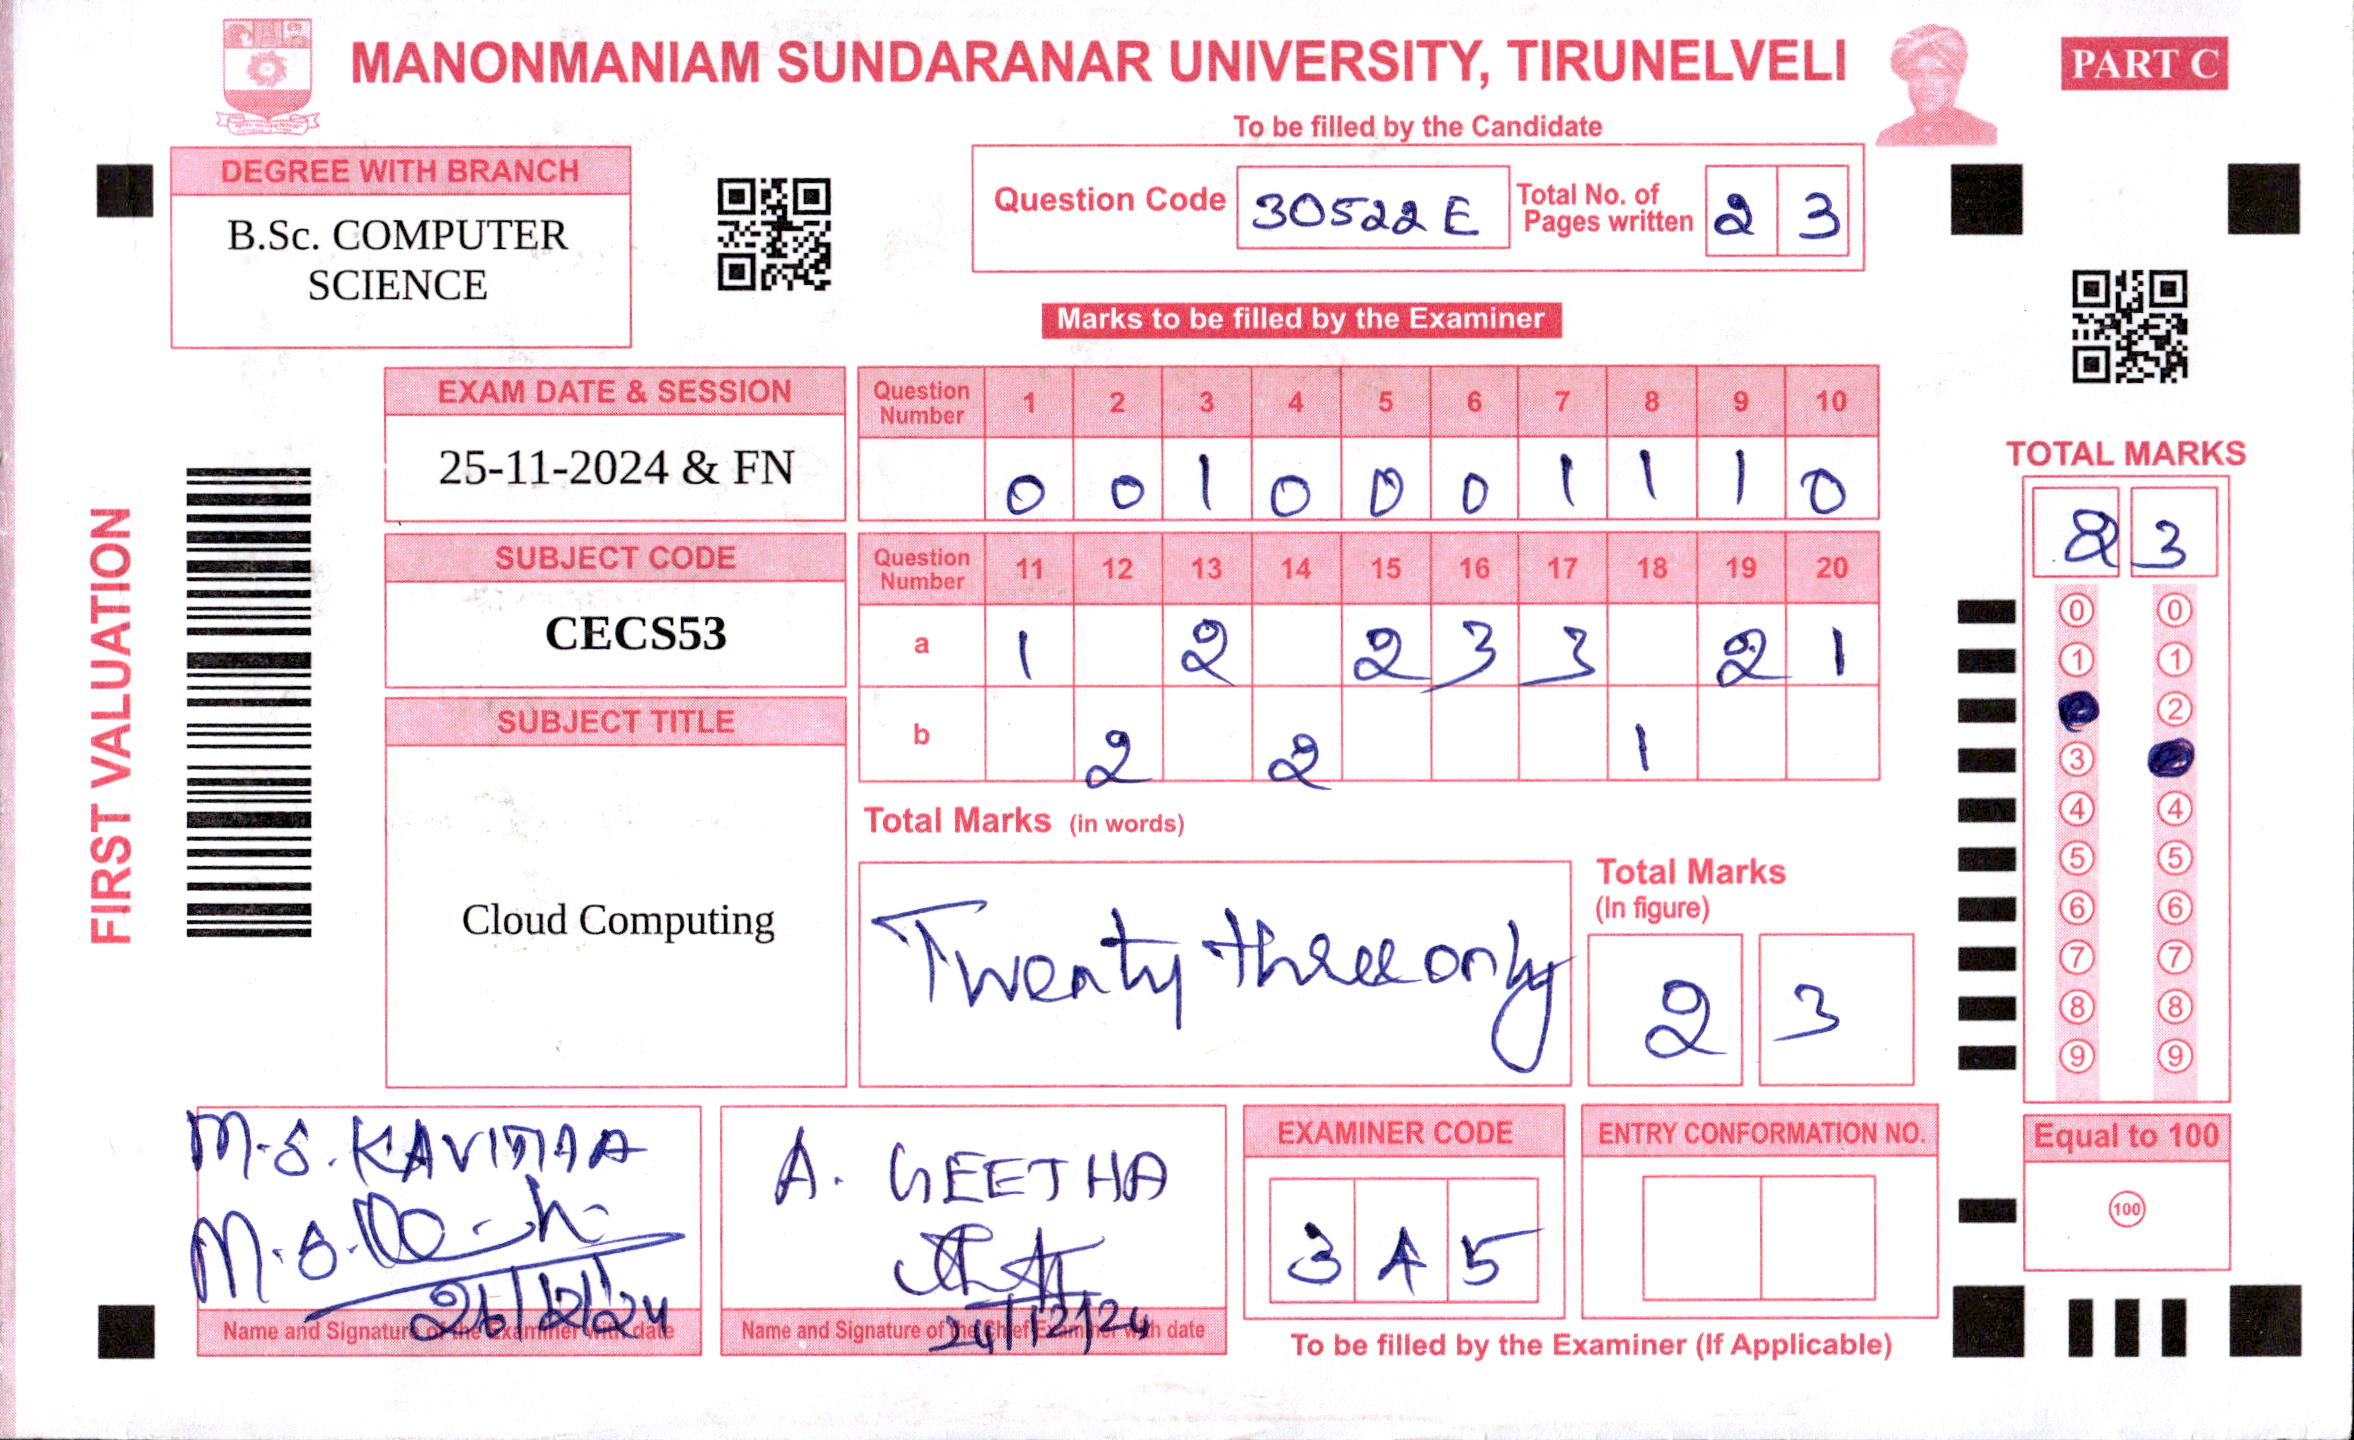 MANONMANIAM SUNDARANAR UNIVERSITY, TIRUNELVELI
PART C
To be filled by the Candidate
DEGREE WITH BRANCH
B.Sc. COMPUTER
SCIENCE
Question Code 30522E Total No. of Pages written 2 3
Marks to be filled by the Examiner
EXAM DATE & SESSION
25-11-2024 & FN
Question Number 1 2 3 4 5 6 7 8 9 10
0 0 1 0 0 0 1 1 1 0
SUBJECT CODE
CECS53
Question Number 11 12 13 14 15 16 17 18 19 20
a 1 2 2 3 3 2 1
b 2 2 1
SUBJECT TITLE
Cloud Computing
Total Marks (in words)
Twenty three only
Total Marks
(In figure)
2 3
FIRST VALUATION
TOTAL MARKS
2 3
0 0
1 1
2
3
4 4
5 5
6 6
7 7
8 8
9 9
Equal to 100
100
M.S. KAVITHA
26/12/24
Name and Signature of the Examiner with date
A. GEETHA
24/12/24
Name and Signature of the Chief Examiner with date
EXAMINER CODE
3 A 5
ENTRY CONFORMATION NO.
To be filled by the Examiner (If Applicable)